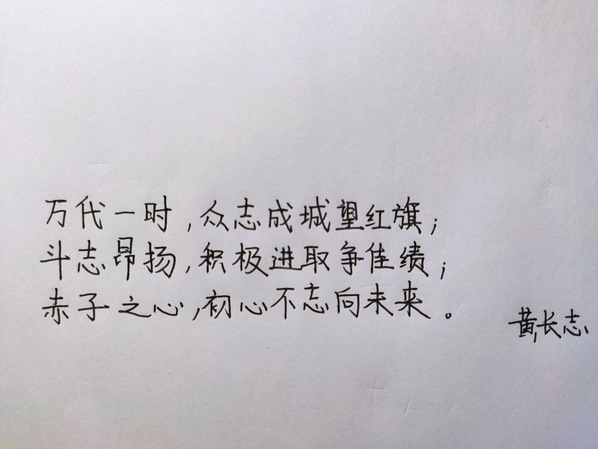 万代一时,众志成城望红旗;
斗志昂扬,积极进取争佳绩;
赤子之心,初心不志向未来。
黄长志